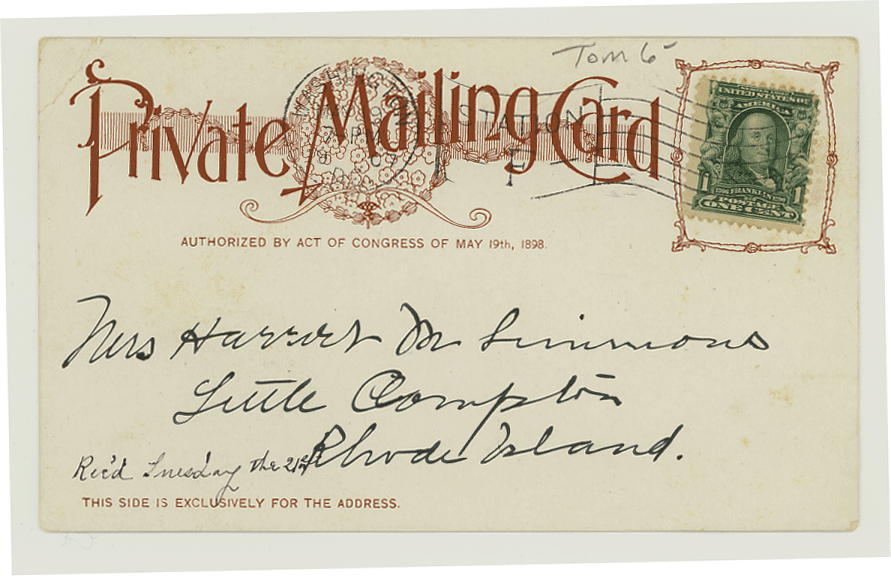 Tom 6
Private Mailing Card
WASHINGTON
STATION
UNITED STATES OF
AMERICA
1 1706 FRANKLIN 1790 1
POSTAGE
ONE CENT
AUTHORIZED BY ACT OF CONGRESS OF MAY 19th, 1898.
Mrs Harriet M Simmons
Little Compton
Rhode Island.
Rec'd Tuesday the 21st
THIS SIDE IS EXCLUSIVELY FOR THE ADDRESS.